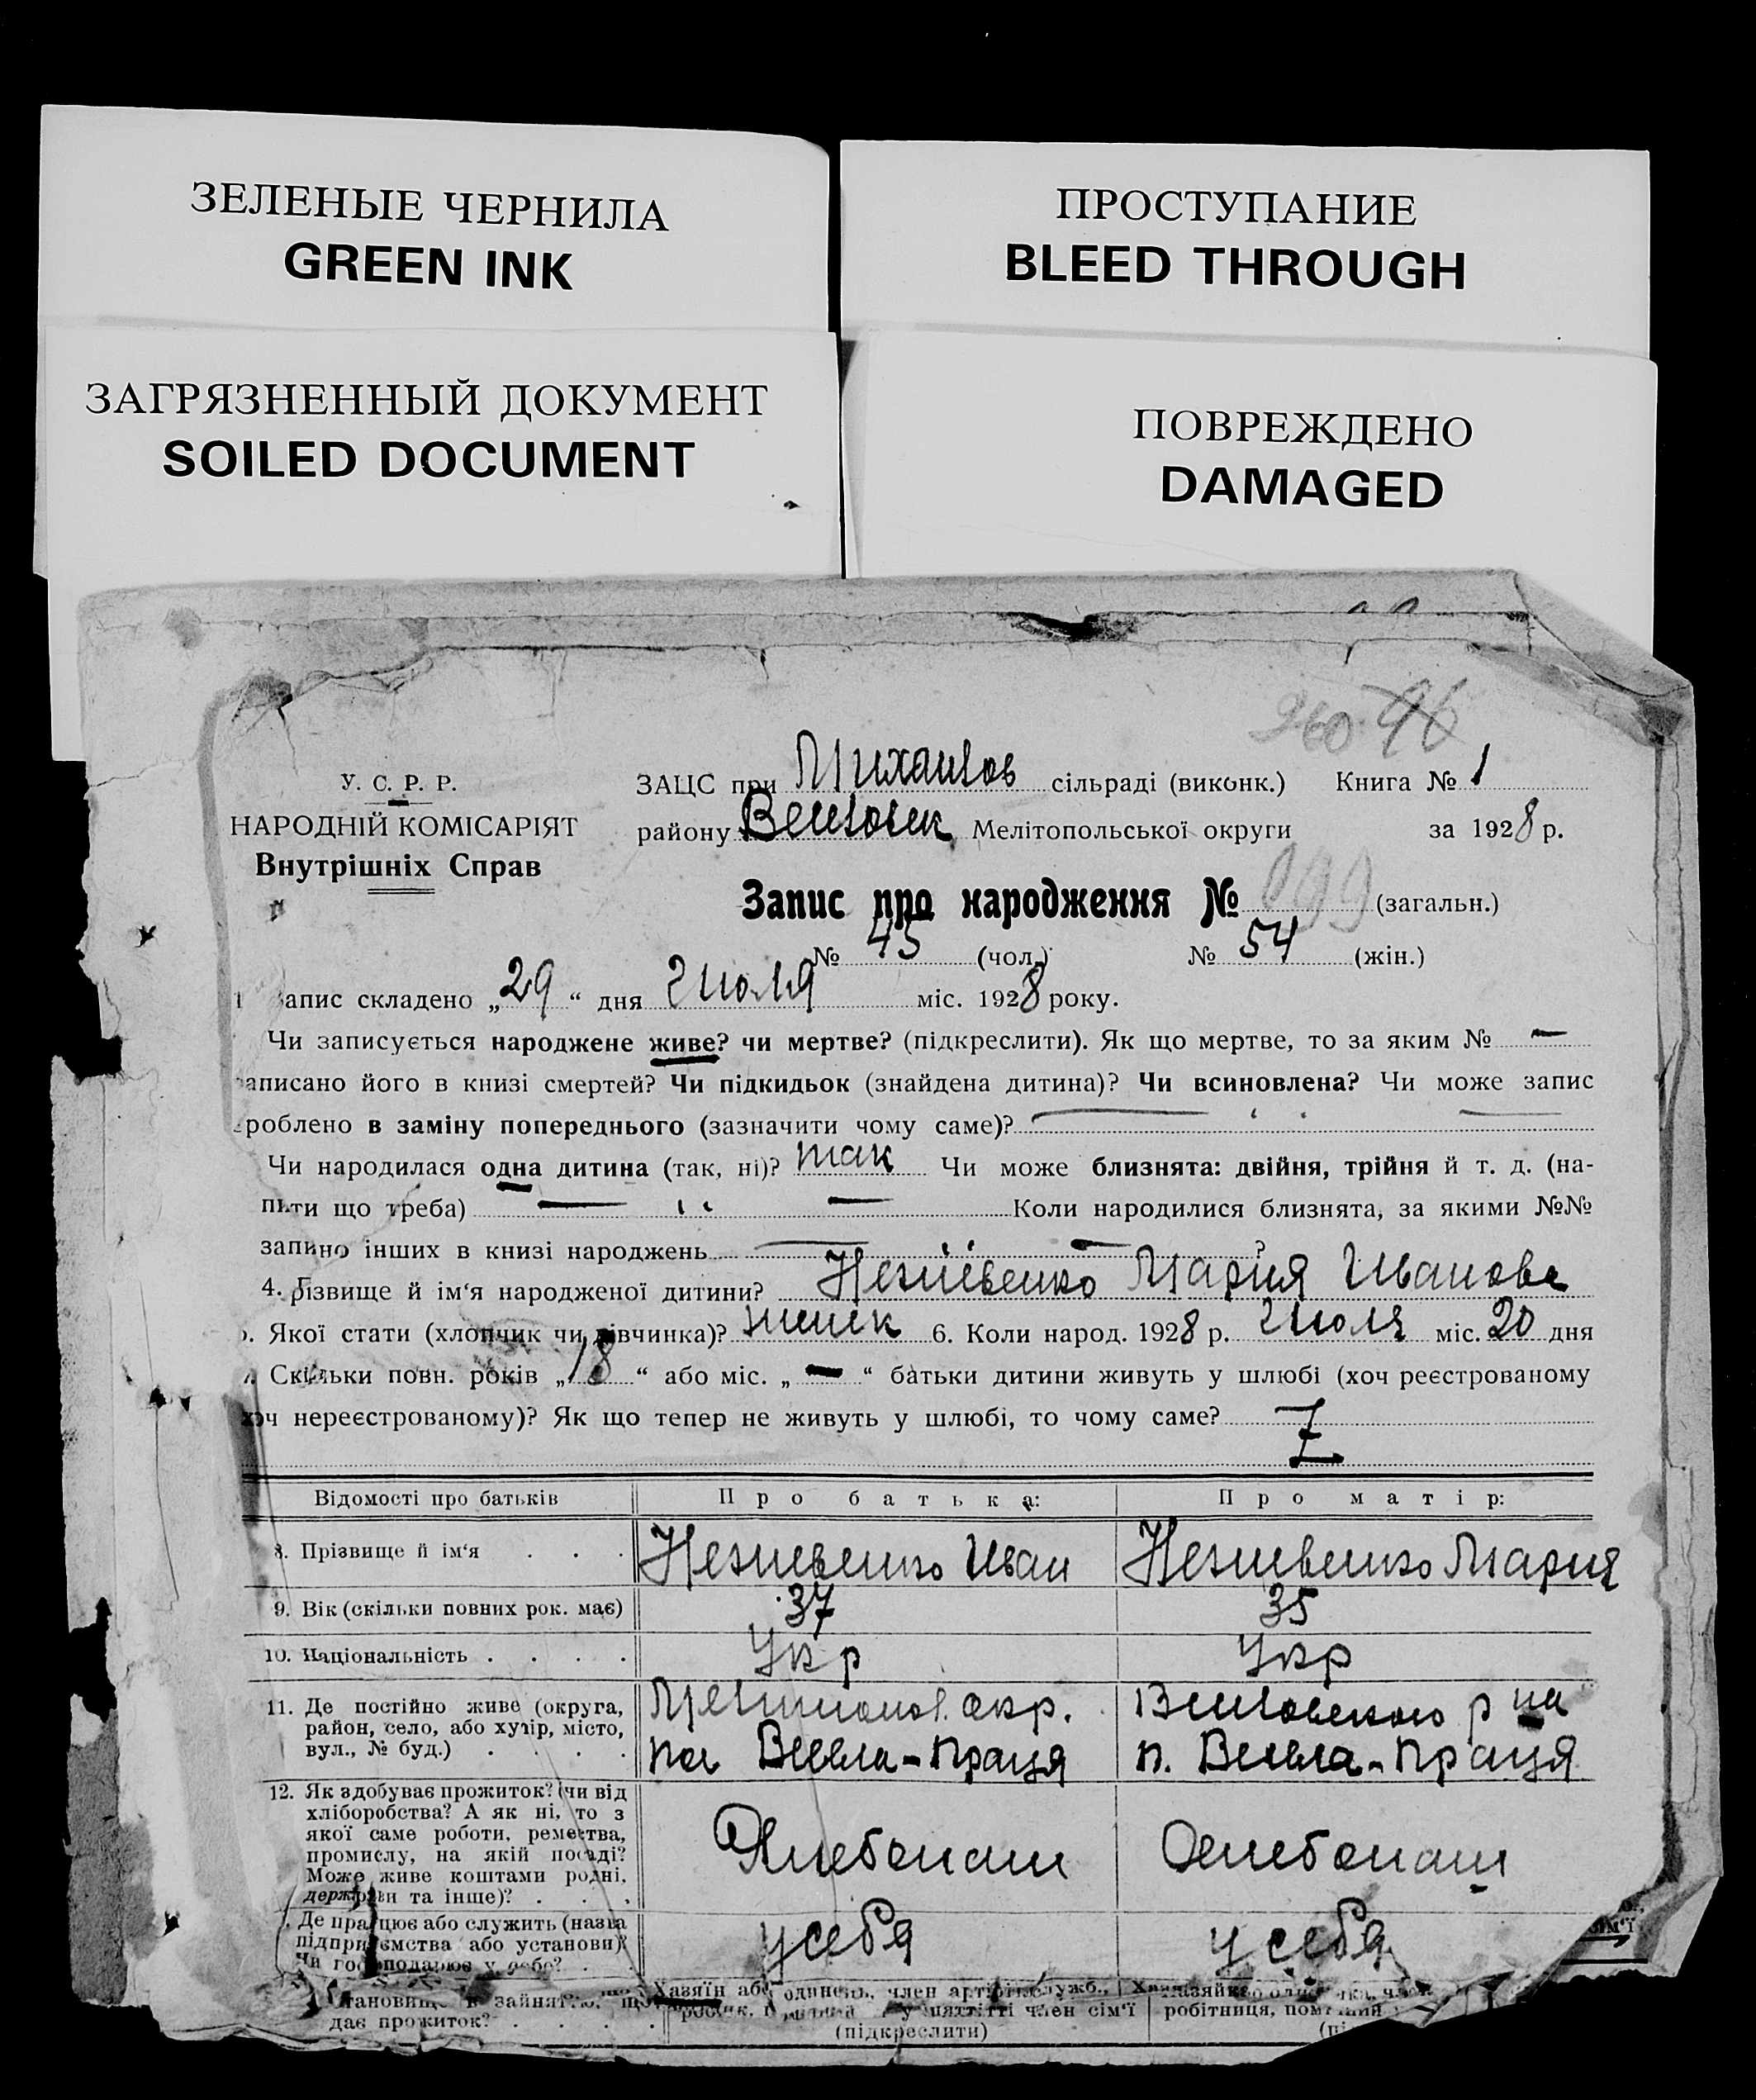 ЗЕЛЕНЫЕ ЧЕРНИЛА
GREEN INK
ПРОСТУПАНИЕ
BLEED THROUGH
ЗАГРЯЗНЕННЫЙ ДОКУМЕНТ
SOILED DOCUMENT
ПОВРЕЖДЕНО
DAMAGED
960 96
У. С. Р. Р.
НАРОДНІЙ КОМІСАРІЯТ
Внутрішніх Справ
ЗАЦС при Михайлов сільраді (виконк.) Книга № 1
району Мелітопольської округи за 1928 р.
Запис про народження № 099 (загальн.)
№ 45 (чол.) № 54 (жін.)
апис складено „29“ дня Июля міс. 1928 року.
Чи записується народжене живе? чи мертве? (підкреслити). Як що мертве, то за яким № —
аписано його в книзі смертей? Чи підкидьок (знайдена дитина)? Чи всиновлена? Чи може запис
роблено в заміну попереднього (зазначити чому саме)?
Чи народилася одна дитина (так, ні)? так Чи може близнята: двійня, трійня й т. д. (на-
пити що треба) — „ — Коли народилися близнята, за якими №№
запино інших в книзі народжень — „ — ?
4. різвище й ім‘я народженої дитини? Незневенко Мария Иванова
Якої стати (хлопчик чи дівчинка)? женск 6. Коли народ. 1928 р. Июля міс. 20 дня
Скільки повн. років „18“ або міс. „—“ батьки дитини живуть у шлюбі (хоч реєстрованому
хоч нереєстрованому)? Як що тепер не живуть у шлюбі, то чому саме? Z
Відомості про батьків Про батька: Про матір:
8. Прізвище й ім‘я Незневенко Иван Незневенко Мария
9. Вік (скільки повних рок. має) 37 35
10. Національність Укр Укр
11. Де постійно живе (округа,
район, село, або хутір, місто,
вул., № буд.)
Мелитопол. окр.
Весела-Праця
р на
п. Весела-Праця
12. Як здобуває прожиток? (чи від
хліборобства? А як ні, то з
якої саме роботи, ремества,
промислу, на якій посаді?
Може живе коштами рідні,
держави та інше)?
Хлебопаш Хлебопаш
Де працює або служить (назва
підприємства або установи)?
Чи господарює у себе?
у себя у себя
становище в зайнятю, що
дає прожиток?
Хазяїн або одинець, член артілі, служб.,
член сім‘ї
(підкреслити)
робітниця,